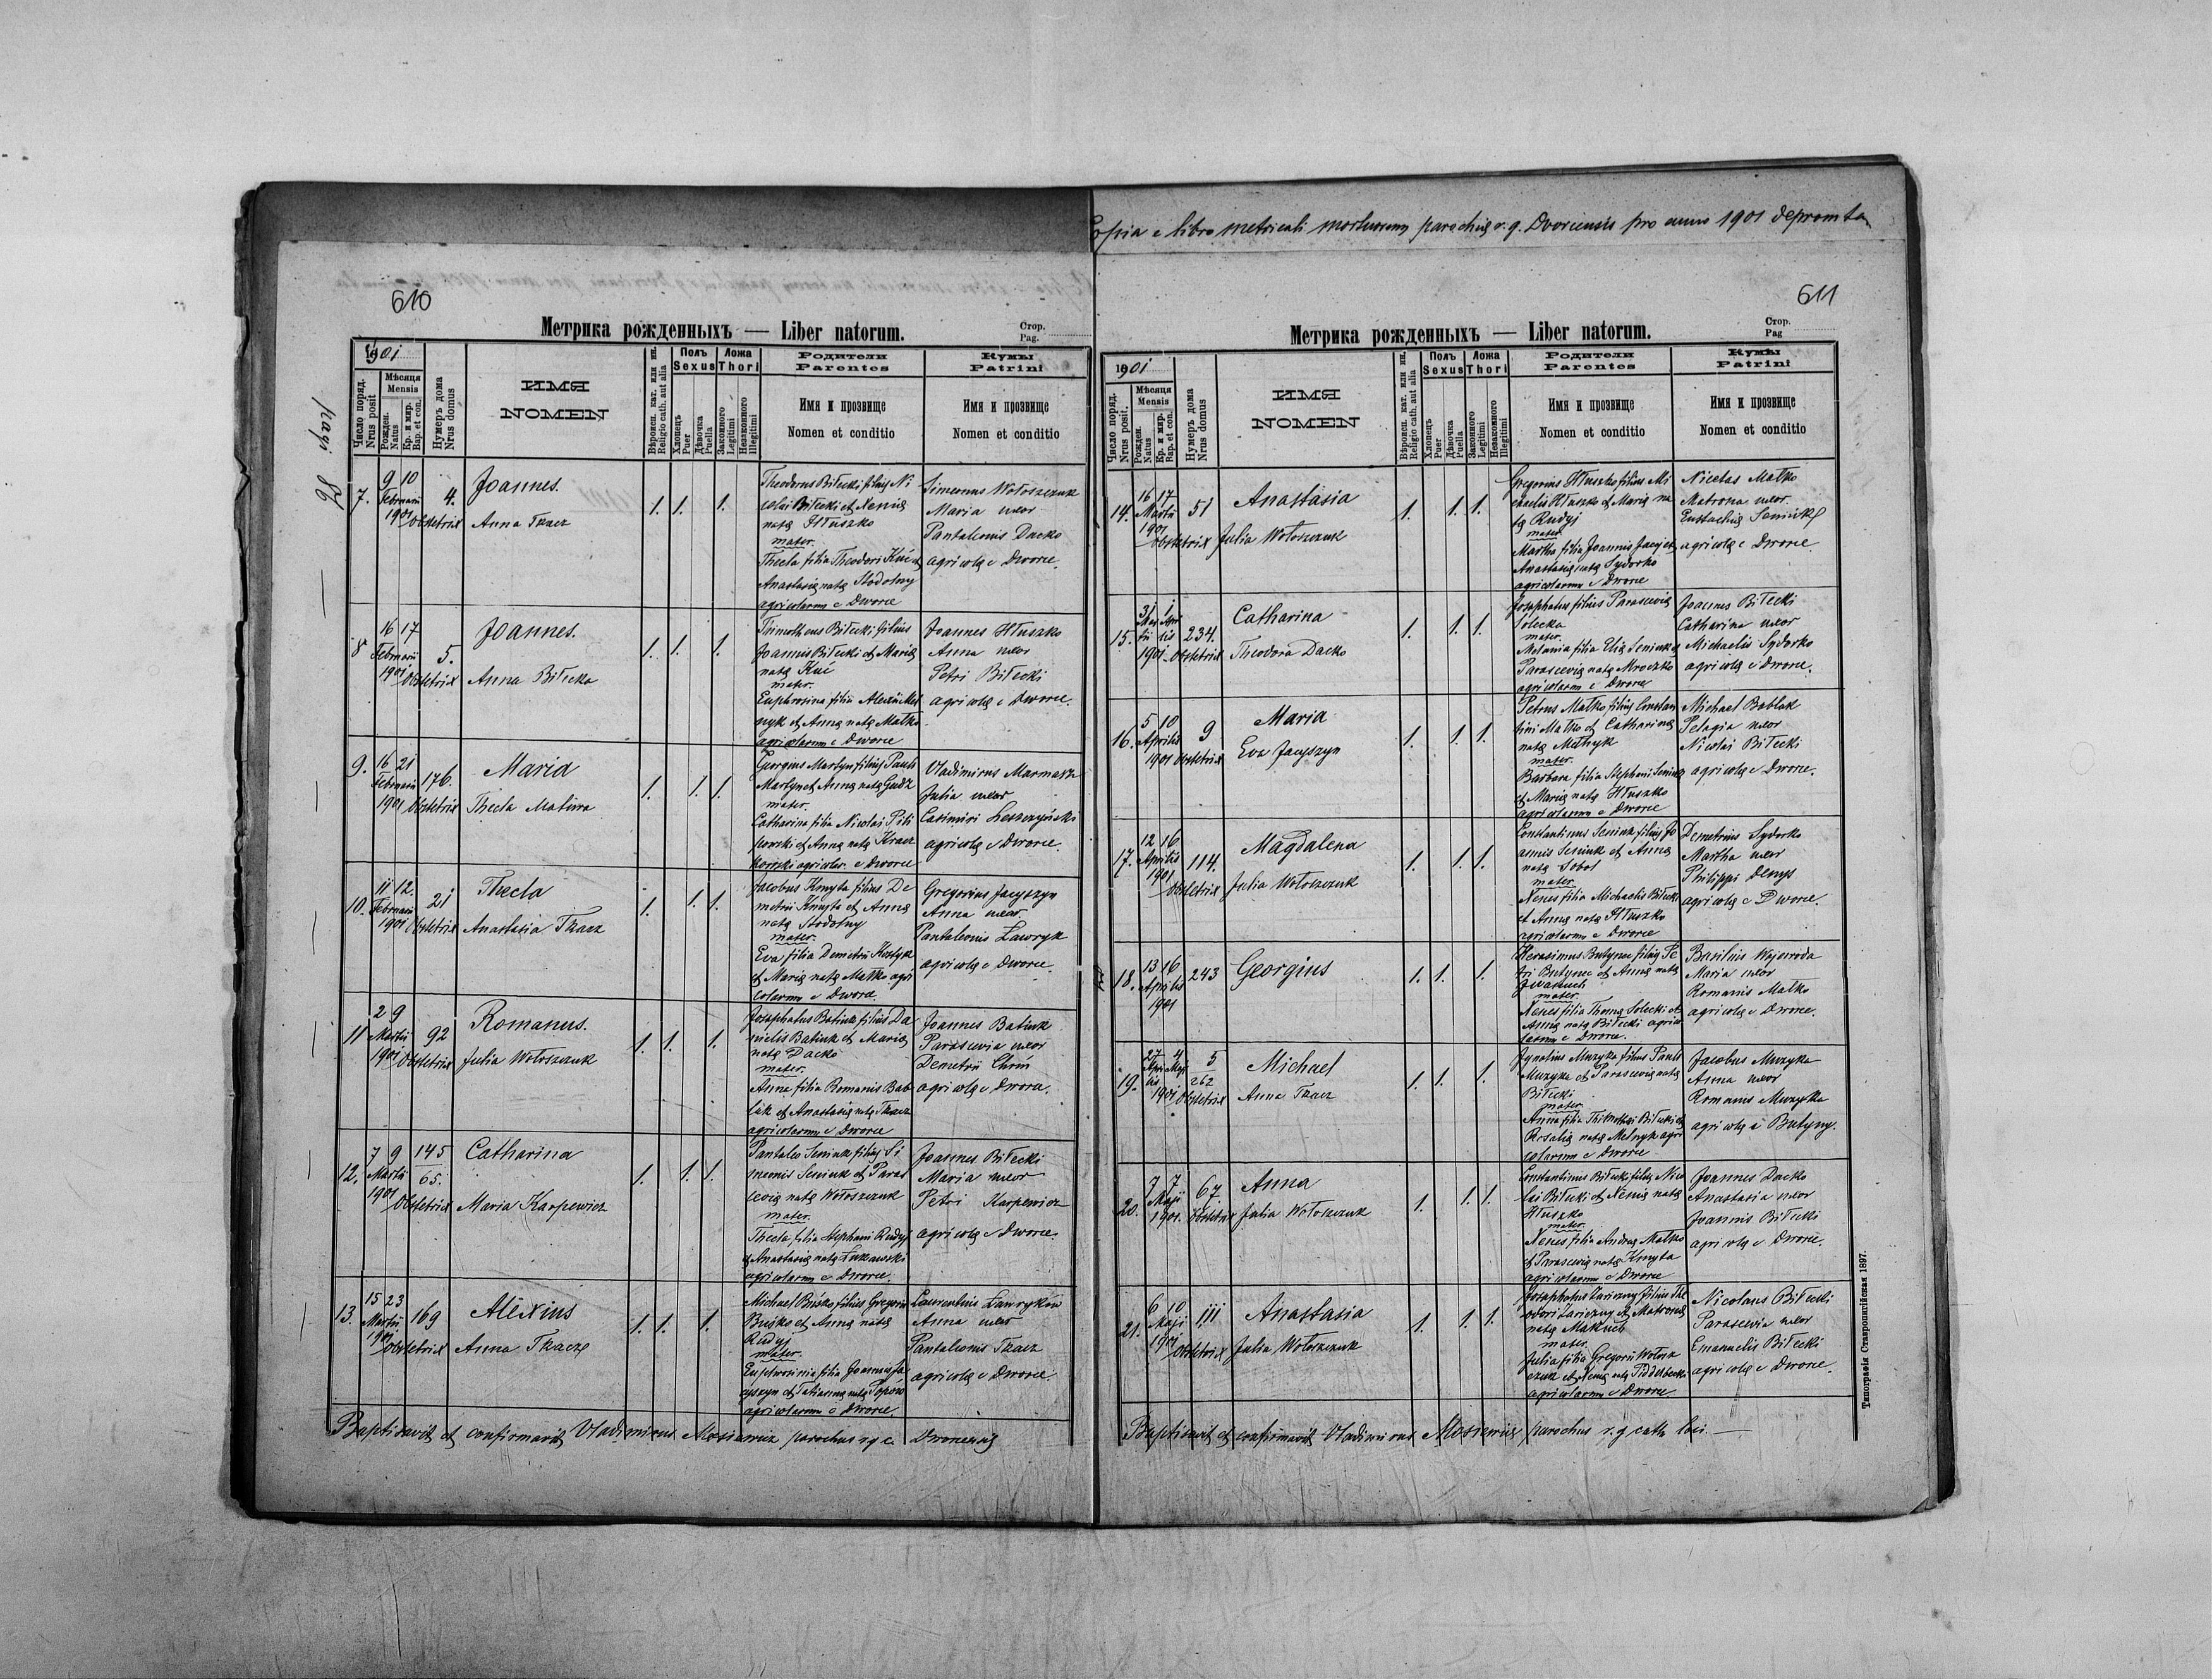 Copia e libro metricali mortuorum parochiæ r. g. Dvorcensis pro anno 1901 deprom ta
610
Метрика рожденныхъ — Liber natorum.
Стор.
Pag.
1901
Число поряд.
Nrus posit
Мѣсяця
Mensis
Рожден.
Natus
Кр. и мир.
Bap. et con.
Нумеръ дома
Nrus domus
ИМЯ
NOMEN
Вѣроисп. кат. или ин.
Religio cath. aut alia
Полъ
Sexus
Хлопецъ
Puer
Дѣвочка
Puella
Ложа
Thori
Законного
Legitimi
Незаконного
Illegitimi
Родители
Parentes
Имя и прозвище
Nomen et conditio
Кумы
Patrini
Имя и прозвище
Nomen et conditio
7.
9 10
Februarii
1901
4.
Joannes.
Obstetrix Anna Tkacz
1. 1. 1.
Theodorus Biłecki filius Ni
colai Biłecki et Xeniæ
natæ Hłuszko
mater.
Thecla filia Theodori Kuć et
Anastasiæ natæ Stodolny
agricolarum e Dworce
Simeonus Wołoszczuk
Maria uxor
Pantaleonis Dacko
agricolæ e Dworce.
8
16 17
Februarii
1901
5.
Joannes.
Obstetrix Anna Biłecka
1. 1. 1.
Timotheus Biłecki filius
Joannis Biłecki et Mariæ
natæ Kuć
mater.
Euphrosina filia Alexii Mel
nyk et Annæ natæ Matko
agricolarum e Dworce
Joannes Hłuszko
Anna uxor
Petri Biłecki
agricolæ e Dworce.
9.
16 21
Februarii
1901
176.
Maria
Obstetrix Thecla Matwra
1. 1. 1.
Georgius Martyn filius Pauli
Martyn et Annæ natæ Gudz
mater.
Catharina filia Nicolai Pili
powski et Annæ natæ Kracz
kowski agricolar. e Dworce
Vladimirus Marmasz
Julia uxor
Casimiri Leszczyński
agricolæ e Dworce.
10.
11 12.
Februarii
1901
21
Thecla
Obstetrix Anastasia Tkacz
1. 1. 1.
Jacobus Kmyta filius De
metrii Kmyta et Annæ
natæ Stodolny
mater.
Eva filia Demetrii Kostyk
et Mariæ natæ Matko agri
colarum e Dworce.
Gregorius Jacyszyn
Anna uxor
Pantaleonis Ławryk
agricolæ e Dworce.
11
2 9
Martii
1901
92
Romanus.
Obstetrix Julia Wołoszczuk
1. 1. 1.
Josaphatus Batiuk filius Da
nielis Batiuk et Mariæ
natæ Dacko
mater.
Anna filia Romanis Bab
lak et Anastasiæ natæ Tkacz
agricolarum e Dworce
Joannes Batiuk
Parascevia uxor
Demetrii Chim
agricolæ e Dwora.
12.
7 9
Martii
1901
145
65.
Catharina
Obstetrix Maria Karpewicz
1. 1. 1.
Pantaleo Seniuk filius Si
meonis Seniuk et Paras
ceviæ natæ Wołoszczuk
mater.
Thecla filia Stephani Rudyj
et Anastasiæ natæ Łukawski
agricolarum e Dworce.
Joannes Biłecki
Maria uxor
Petri Karpewicz
agricolæ e Dworce.
13.
15 23
Martii
1901
169
Alexius
Obstetrix Anna Tkacz
1. 1. 1.
Michael Buśko filius Gregorii
Buśko et Annæ natæ
Rudyj
mater.
Euphrosinia filia Joannis Ja
cyszyn et Tatiannæ natæ Popów
agricolarum e Dworce.
Laurentius Ławryków
Anna uxor
Pantaleonis Tkacz
agricolæ e Dworce
Baptisavit et confirmavit Vladimirus Mosiewicz parochus r. g. c. Dworcensis
611
Метрика рожденныхъ — Liber natorum.
Стор.
Pag
1901
Число поряд.
Nrus posit.
Мѣсяця
Mensis
Рожден.
Natus
Кр. и мир.
Bap. et con.
Нумеръ дома
Nrus domus
ИМЯ
NOMEN
Вѣроисп. кат. или ин.
Religio cath. aut alia
Полъ
Sexus
Хлопецъ
Puer
Дѣвочка
Puella
Ложа
Thori
Законного
Legitimi
Незаконного
Illegitimi
Родители
Parentes
Имя и прозвище
Nomen et conditio
Кумы
Patrini
Имя и прозвище
Nomen et conditio
14.
16 17
Martii
1901
51
Anastasia
Obstetrix Julia Wołoszczuk
1. 1. 1.
Gregorius Hłuszko filius Mi
chaelis Hłuszko et Mariæ na
tæ Rudyj
mater
Martha filia Joannis Jacej et
Anastasiæ natæ Sydorko
agricolarum e Dworce
Nicetas Matko
Matrona uxor
Eustachii Seniuk
agricolæ e Dworce.
15.
31 1
Mar Apri
tii lis
1901
234.
Catharina
Obstetrix Theodora Dacko
1. 1. 1.
Josaphatus filius Parasceviæ
Solecka
mater.
Melania filia Eliæ Seniuk et
Parasceviæ natæ Mroczko
agricolarum e Dworce
Joannes Biłecki
Catharina uxor
Michaelis Sydorko
agricolæ e Dworce.
16.
5 10
Aprilis
1901
9
Maria
Obstetrix Eva Jacyszyn
1. 1. 1.
Petrus Matko filius Constan
tini Matko et Catharinæ
natæ Melnyk
mater.
Barbara filia Stephani Seniuk
et Mariæ natæ Hłuszko
agricolarum e Dworce
Michael Bablak
Pelagia uxor
Nicolai Biłecki
agricolæ e Dworce.
17.
12 16
Aprilis
1901
114.
Magdalena
Obstetrix Julia Wołoszczuk
1. 1. 1.
Constantinus Seniuk filius Jo
annis Seniuk et Annæ
natæ Sobol
mater.
Xenes filia Michaelis Biłecki
et Annæ natæ Hłuszko
agricolarum e Dworce
Demetrius Sydorko
Martha uxor
Philippi Denys
agricolæ e Dworce.
18.
13 16
Aprilis
1901
243
Georgius
1. 1. 1.
Herasimus Butynec filius Pe
tri Butynec et Annæ natæ
mater.
Xenes filia Thomæ Solecki et
Annæ natæ Biłecki agrico
larum e Dworce.
Basilius Wojewoda
Maria uxor
Romanis Matko
agricolæ e Dworce.
19.
27 4
Apri Maji
lis
1901
5
262
Michael
Obstetrix Anna Tkacz
1. 1. 1.
Ignatius Muzyka filius Pauli
Muzyka et Parasceviæ natæ
Biłecki
mater
Anna filia Thimothei Biłecki et
Rosaliæ natæ Melnyk agri
colarum e Dworce
Jacobus Muzyka
Anna uxor
Romanus Muzyka
agricolæ e Butyny.
20.
7 7
Maji
1901.
67
Anna
Obstetrix Julia Wołoszczuk
1. 1. 1.
Constantinus Biłecki filius Nico
lai Biłecki et Xeniæ natæ
Hłuszko
mater.
Xenes filia Andreæ Matko
et Parasceviæ natæ Kmyta
agricolarum e Dworce
Joannes Dacko
Anastasia uxor
Joannis Biłecki
agricolæ e Dworce.
21.
6 10
Maji
1901
111
Anastasia
Obstetrix Julia Wołoszczuk
1. 1. 1.
Josaphatus Zariczny filius The
odori Zariczny et Matronæ
natæ Makuch
mater.
Julia filia Gregorii Wołosz
czuk et Xeniæ natæ Piddubecka
agricolarum e Dworce
Nicolaus Biłecki
Parascevia uxor
Emanuelis Biłecki
agricolæ e Dworce.
Baptisavit et confirmavit Vladimirus Mosiewicz parochus r. g. cath. loci.
Типографія Ставропигійская 1897.